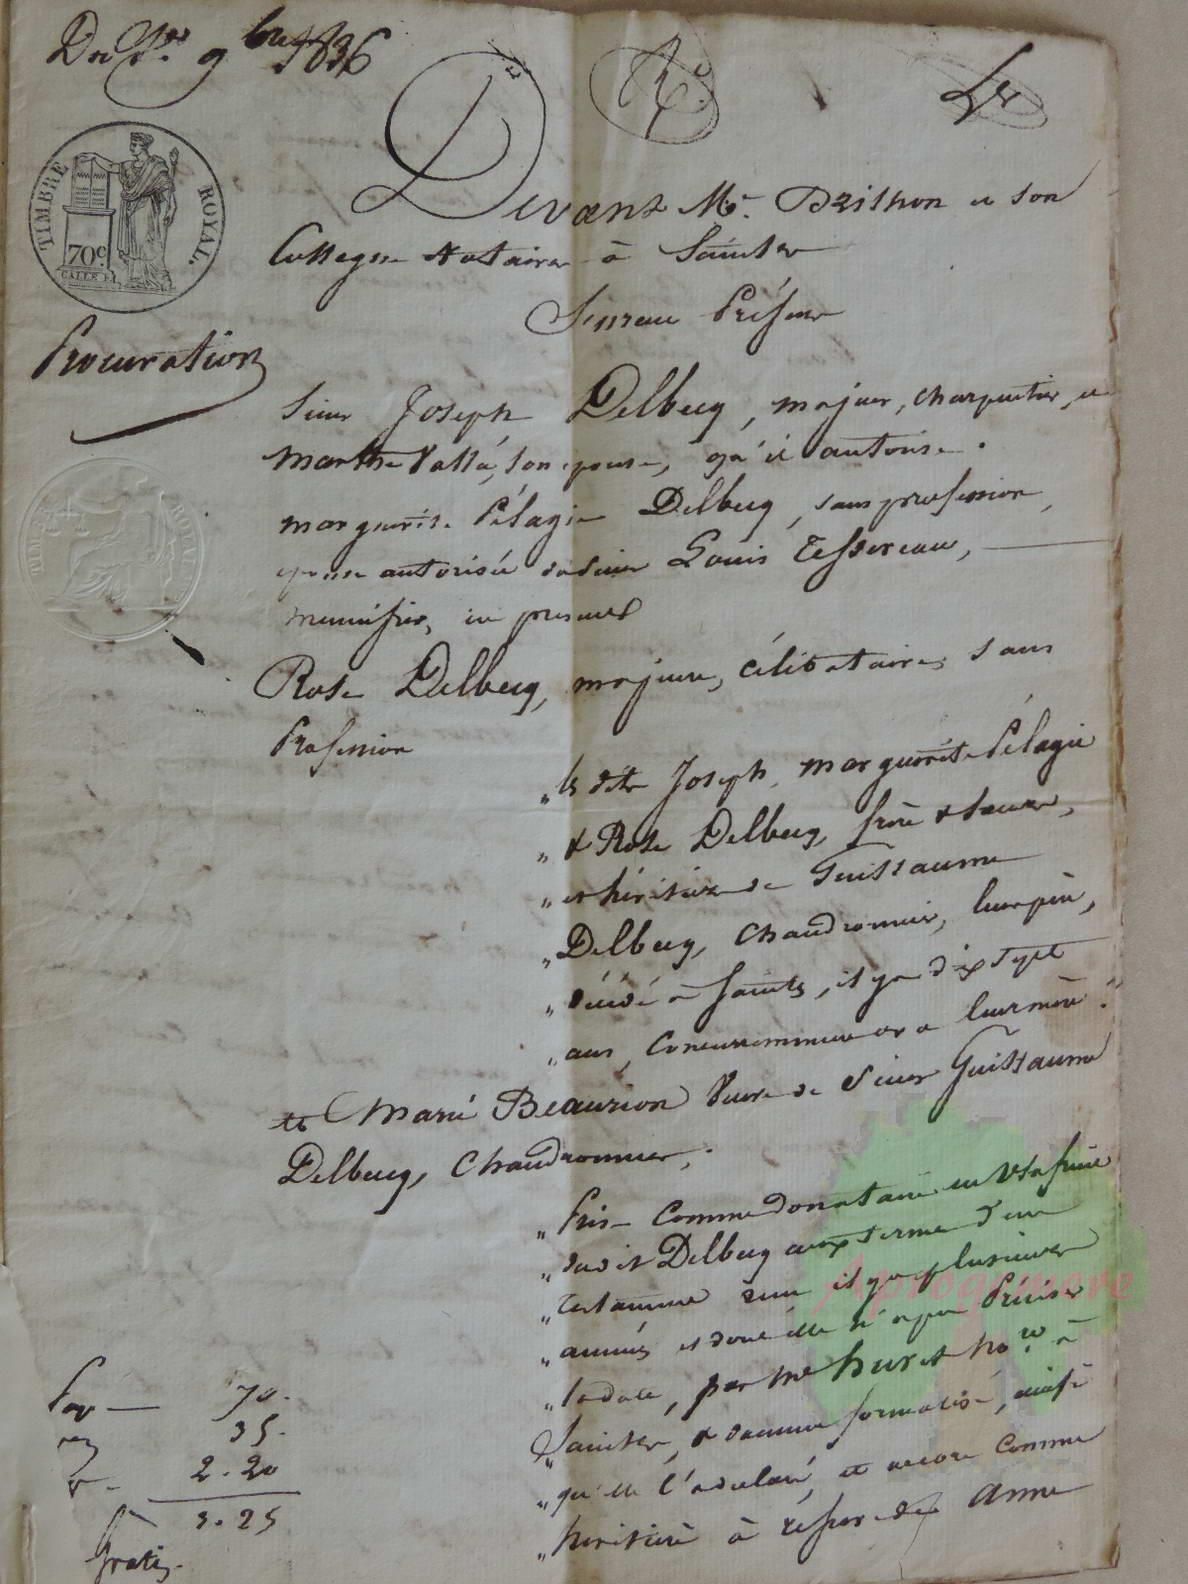 Du 1er 9bre 1836
Ré
TIMBRE ROYAL.
70c
Devant Me. Brishon et son
Collegue Notaires à Saintes
Procuration
Sieur Joseph Delbecq, majeur, charpentier, et
marthe son epouse, qu'il autorise.
marguerite Pélagie Delbecq, sans profession,
epouse autorisée dudit sieur Louis Tessereau,
menuisier, ici present
Rose Delbecq, majeure, célibataire, sans
Profession
" les dits Joseph, marguerite Pélagie
" & Rose Delbecq, frère & soeurs,
" et héritiers de Guillaume
" Delbecq, Chaudronnier, leur père,
" décédé à Saintes, il y a dix sept
" ans, concurremment avec leur mère.
et Marie Beaurion Veuve de Sieur Guillaume
Delbecq, Chaudronnier,
" Prise comme donataire en Usufruit
" dudit Delbecq aux termes d'un
" testament reçu il y a plusieurs
" années et dont elle n'a pu Préciser
" la date, par Me huret Nore à
" Saintes, & dument formalisé, ainsi
" qu'elle l'a déclaré, et encore comme
" héritière à réserve de Anne
70.
35.
2.20
3.25
Gratis.
Aprogemere